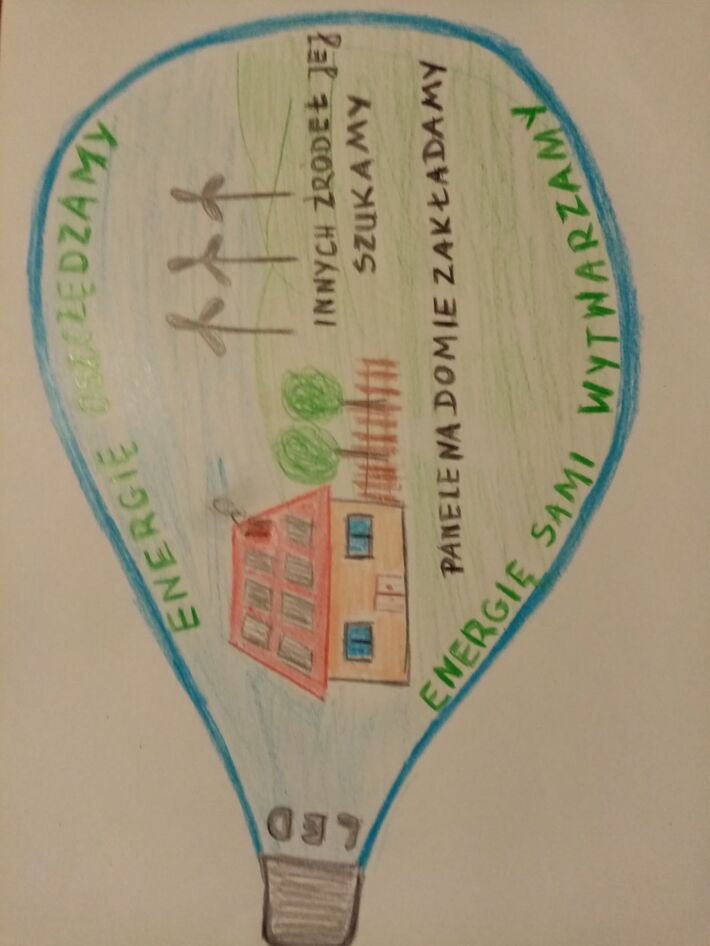 ENERGIĘ OSZCZĘDZAMY
INNYCH ŹRÓDEŁ JEJ
SZUKAMY
PANELE NA DOMIE ZAKŁADAMY
ENERGIĘ SAMI WYTWARZAMY
LED